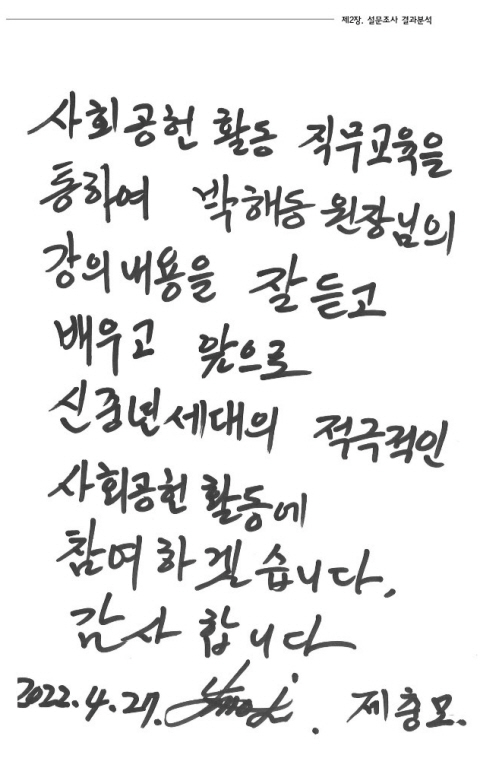 제2장. 설문조사 결과분석
사회공헌 활동 직무교육을
통하여 박해동 원장님의
강의내용을 잘 듣고
배우고 앞으로
신중년세대의 적극적인
사회공헌 활동에
참여하겠습니다.
감사합니다
2022.4.27. 제충모.